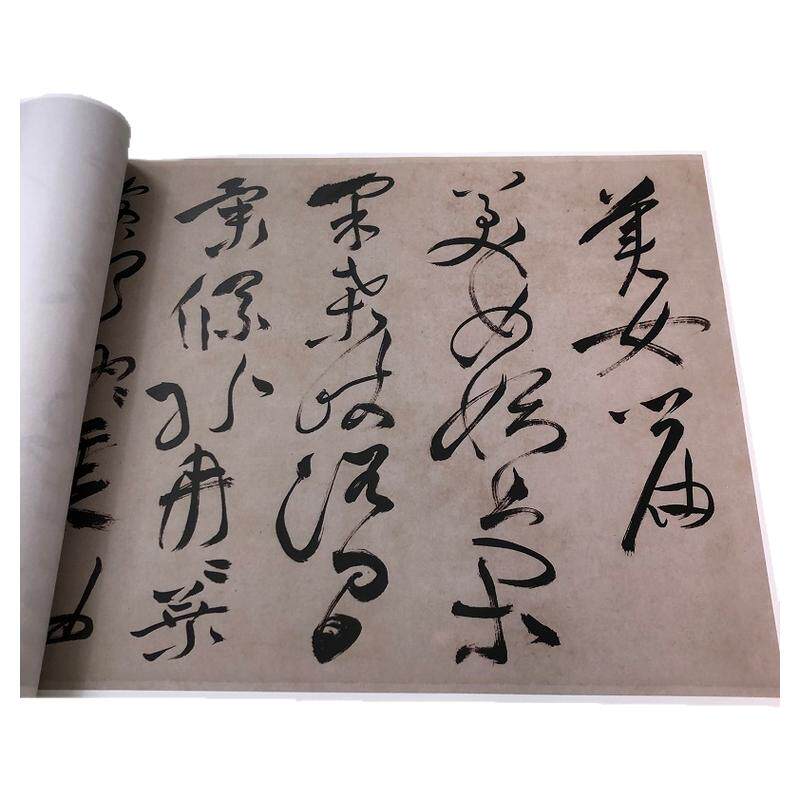 美女篇
美女妖且閑
采桑歧路間
柔條紛冉葉